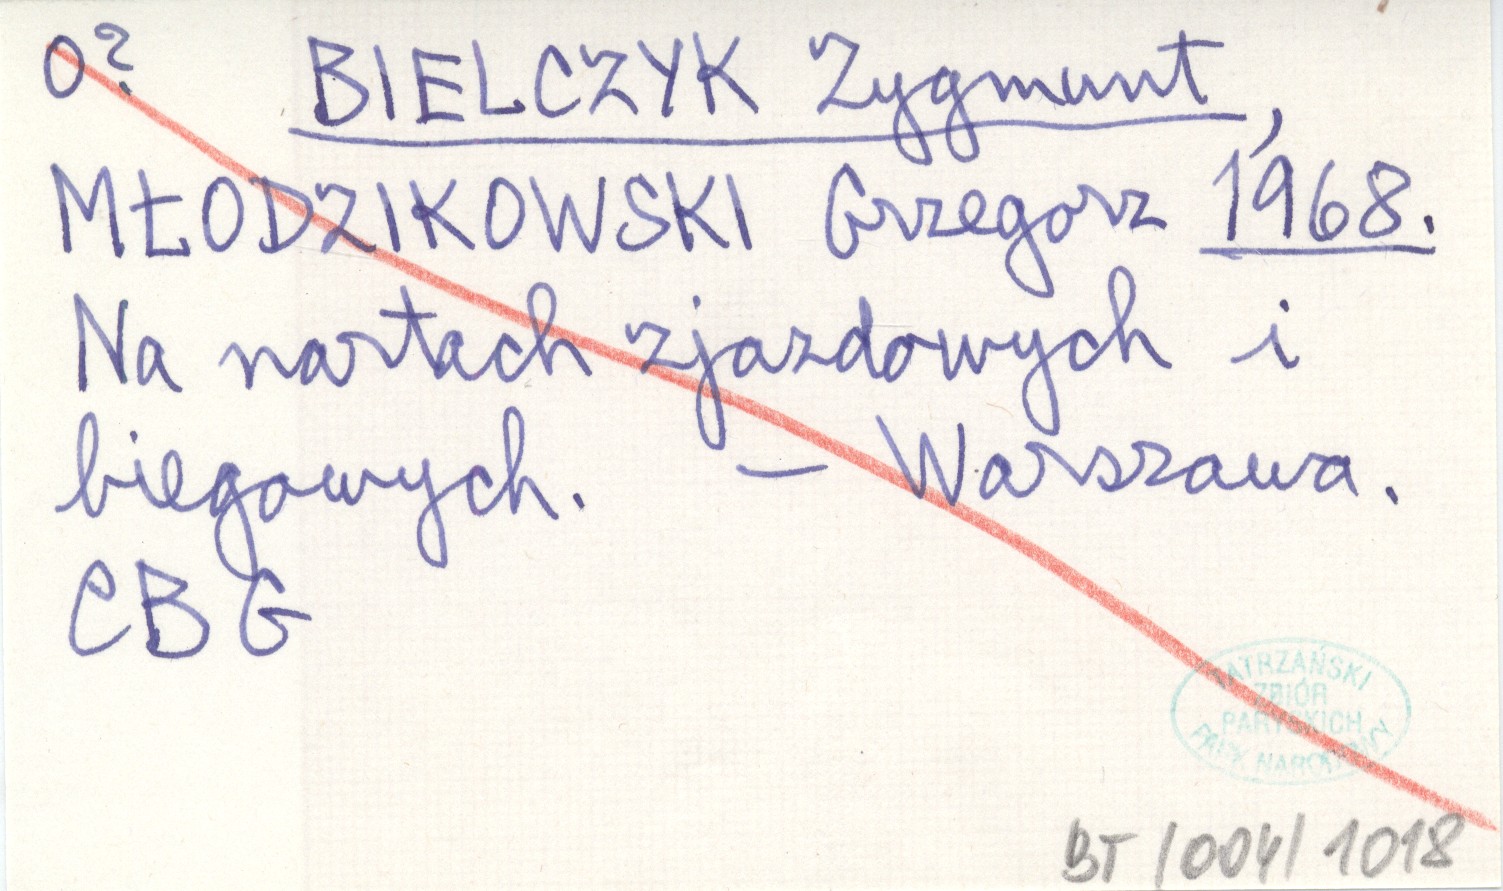 0? BIELCZYK Zygmunt,
MŁODZIKOWSKI Grzegorz 1968.
Na nartach zjazdowych i
biegowych. — Warszawa.
CBG
TATRZAŃSKI
ZBIÓR
PARYSKICH
PARK NARODOWY
BT/004/1018